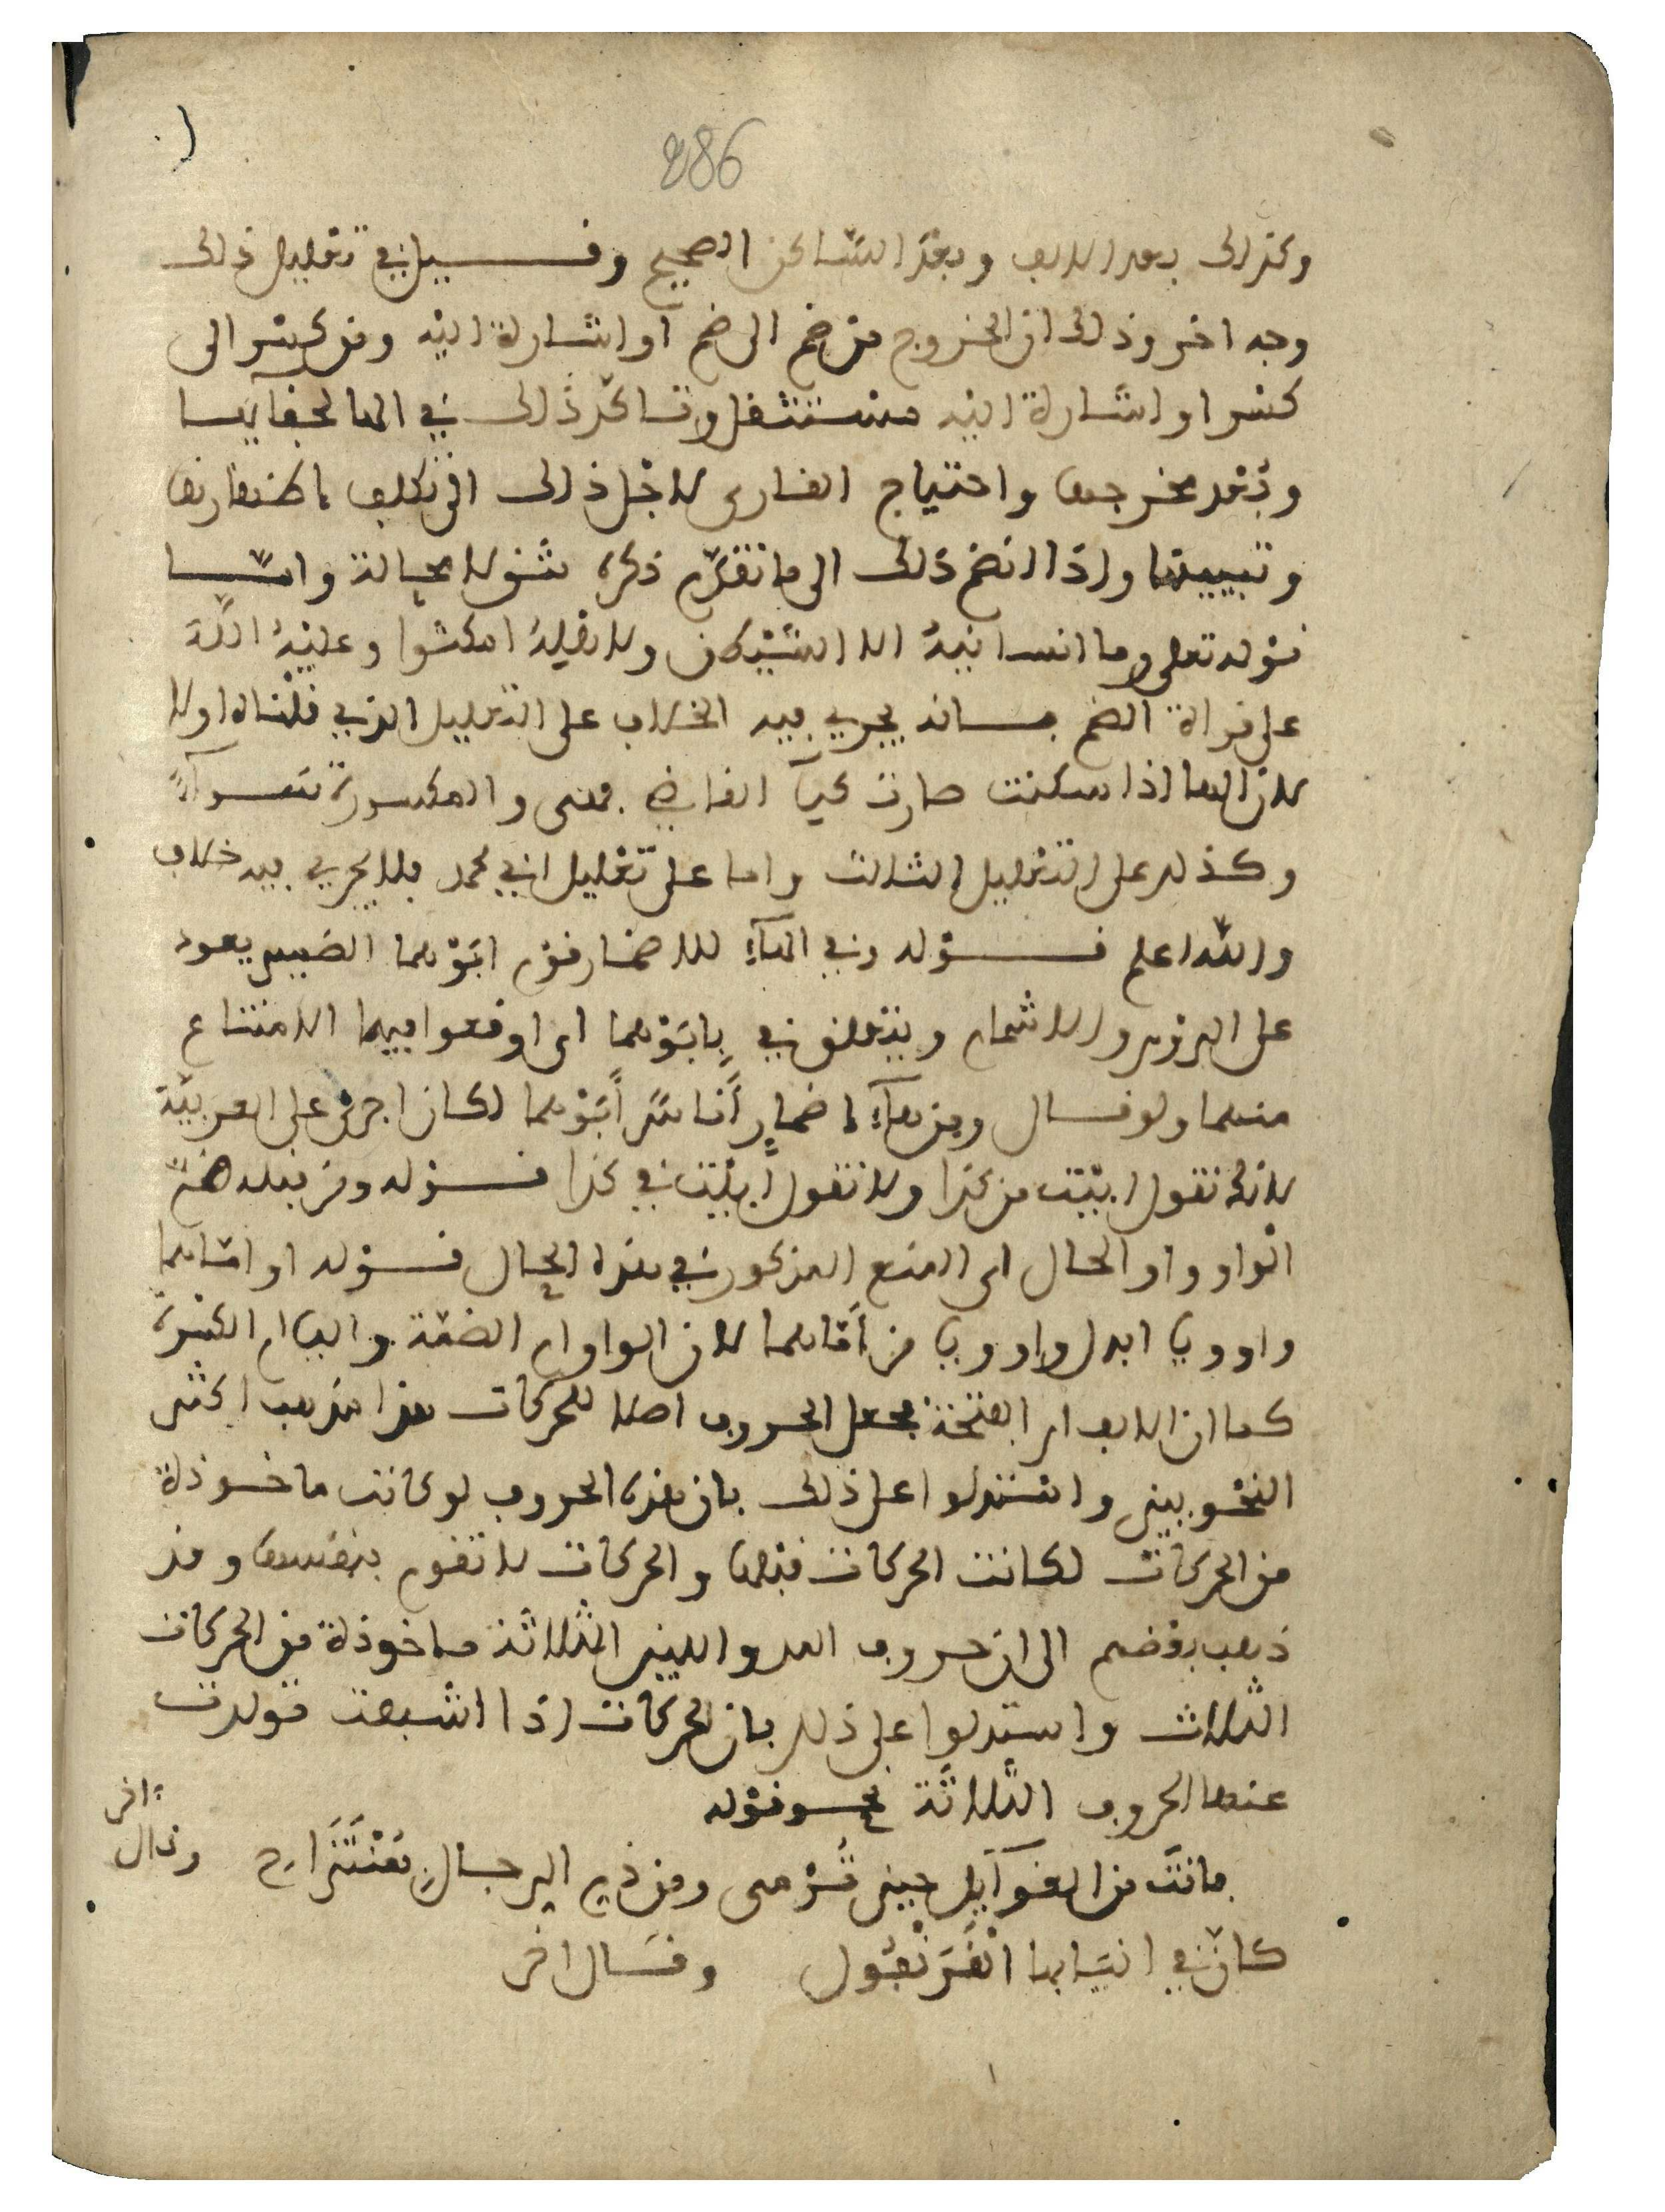 286
وكذلك بعد الالف وبعد الساكن الصحيح وقيل في تعليل ذلك
وجه اخر وذلك ان الخروج من ضم الى ضم او اشارة اليه ومن كسر الى
كسر او اشارة اليه مستثقل وتاكد ذلك في الها لخفآيها
وبعد مخرجها واحتياج القارى لاجل ذلك الى تكلف اظهارها
وتبيينها واذا انضم ذلك الى ما تقدم ذكره ثقل لا محالة وامـا
قوله تعلى وما انسانيه الا الشيطان ولاهله امكثوا وعليه الله
على قراة الضم فـانه يجري فيه الخلاف على التعليل الذي قلناه اولا
لان الها اذا سكنت صارت كيآ القاضي فهي والمكسورة سـوآء
وكذلك على التعليل الثالث واما على تعليل ابي محمد فلا يجري فيه خلاف
والله اعلم قـوله وفي الهآء للاضمار قوم ابوهما الضمير يعود
على الروم والاشمام ويتعلق في بابوهما اى اوقعوا فيهما الامتناع
منهما ولو قـال ومن هآء اضمار اناس ابوهما لكان اجرى على العربية
لانك تقول ابيت من كذا ولا تقول ابيت في كذا قـوله ومن قبله ضم
الواو واو الحال اى المنع المذكور في هذه الحال قـوله او اماهما
واو ويا ابدل واو ويا من اماهما لان الواو ام الضمة واليا ام الكسرة
كما ان الالف ام الفتحة فجعل الحروف اصلا للحركات هذا مذهب اكثر
النحويين واستدلوا على ذلك بان هذه الحروف لو كانت ماخوذة
من الحركات لكانت الحركات قبلها والحركات لا تقوم بنفسها وقد
ذهب بعضهم الى ان حروف المد واللين الثلاثة ماخوذة من الحركات
الثلاث واستدلوا على ذلك بان الحركات اذا اشبعت تولدت
عنها الحروف الثلاثة نحـو قوله
فانت من الغوآيل حين ترمى ومن ذم الرجال بمنتزاح وقال اخر
كان في انيابها القرنفول وقـال اخر